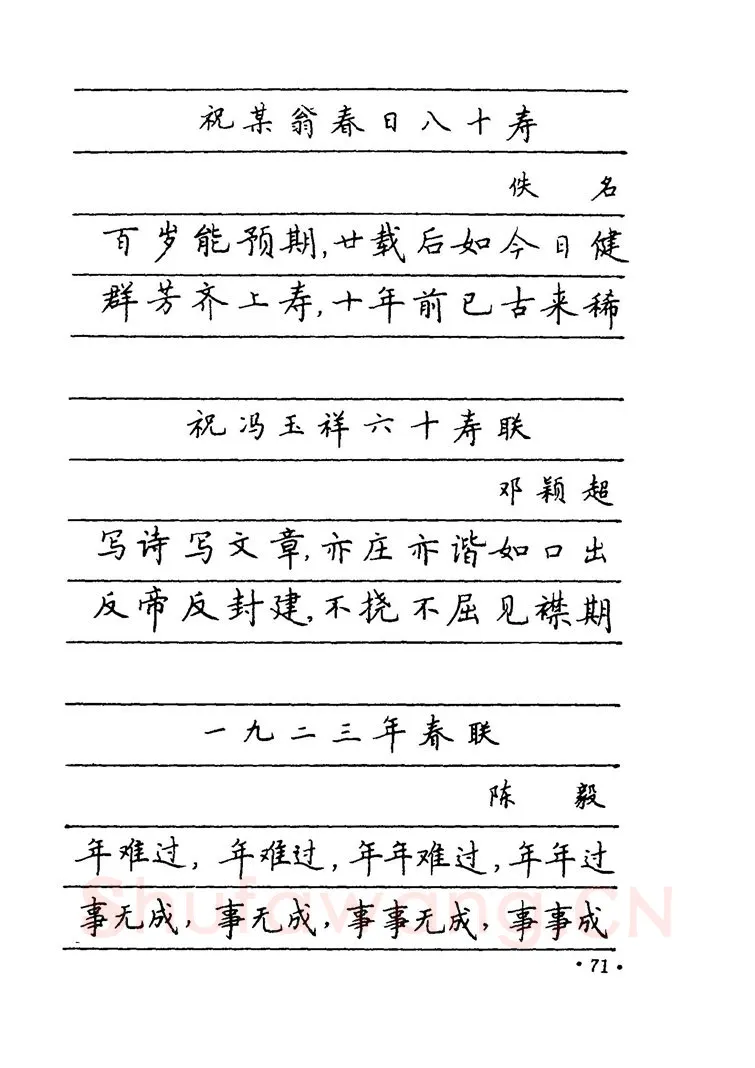 祝某翁春日八十寿
佚 名
百岁能预期,廿载后如今日健
群芳齐上寿,十年前已古来稀
祝冯玉祥六十寿联
邓颖超
写诗写文章,亦庄亦谐如口出
反帝反封建,不挠不屈见襟期
一九二三年春联
陈 毅
年难过,年难过,年年难过,年年过
事无成,事无成,事事无成,事事成
Shufawang.CN
·71·